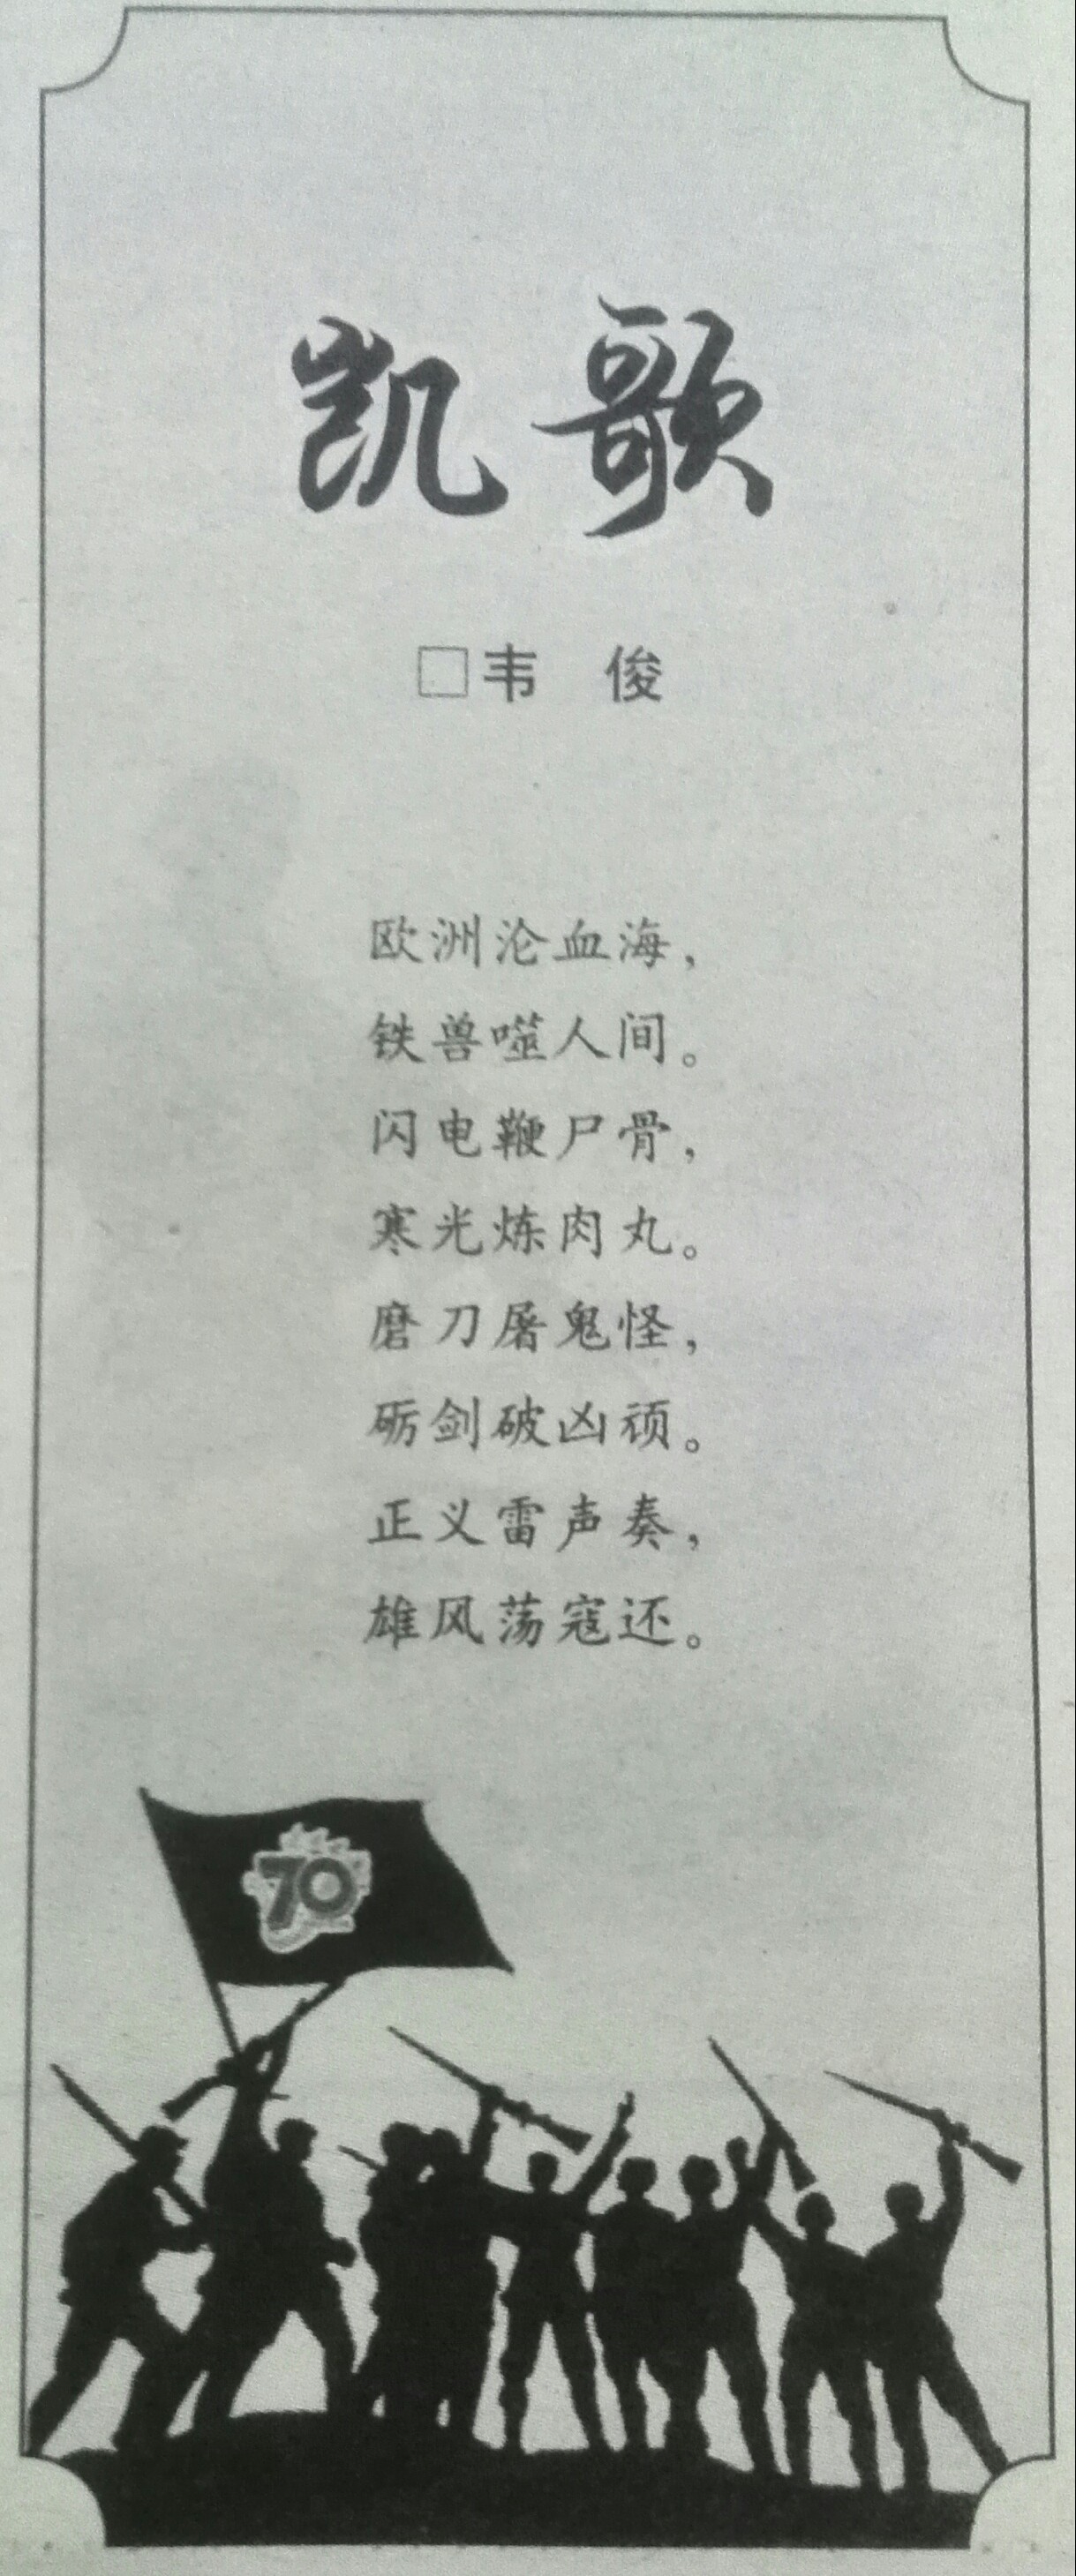 凯歌
□韦 俊
欧洲沦血海，
铁兽噬人间。
闪电鞭尸骨，
寒光炼肉丸。
磨刀屠鬼怪，
砺剑破凶顽。
正义雷声奏，
雄风荡寇还。
70